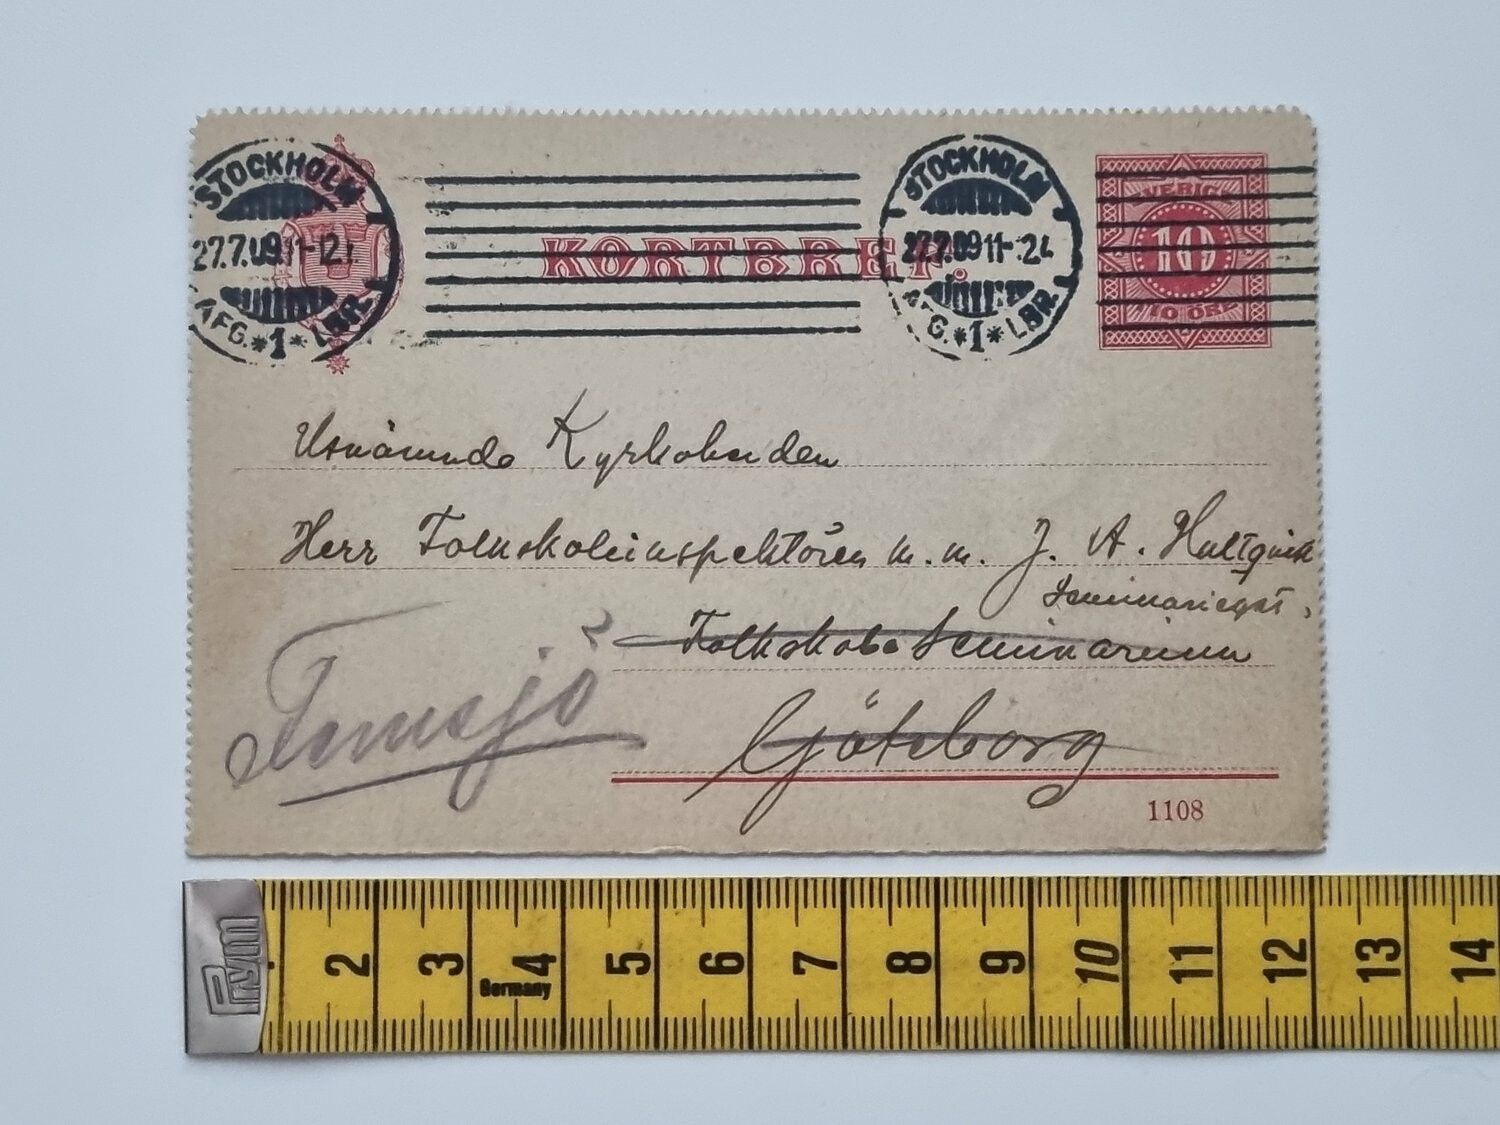 STOCKHOLM
27.7.09 11-12
AFG. *1* LBR.
KORTBREF.
STOCKHOLM
27.7.09 11-12
AFG. *1* LBR.
SVERIGE
10
10 ÖRE
Utnämnde Kyrkoherden
Herr Folkskoleinspektören m.m. J. A. Hultqvist
Seminariegat.
Folkskole Seminarium
Göteborg
1108
Prym
2 3 4 5 6 7 8 9 10 11 12 13 14
Germany